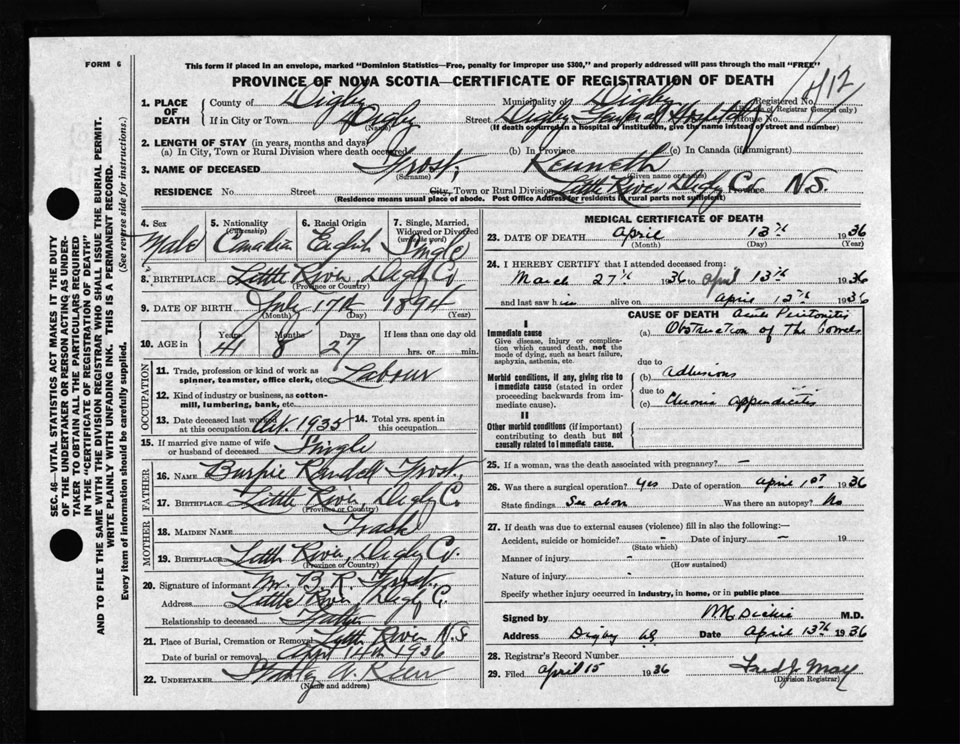 FORM 6
This form if placed in an envelope, marked "Dominion Statistics—Free, penalty for improper use $300," and properly addressed will pass through the mail "FREE"
412
PROVINCE OF NOVA SCOTIA—CERTIFICATE OF REGISTRATION OF DEATH
1. PLACE OF DEATH County of Digby Municipality of Digby Registered No. (Division of Registrar General only)
If in City or Town Digby (Name) Street Digby General Hospital House No.
(If death occurred in a hospital or institution, give the name instead of street and number)
2. LENGTH OF STAY (in years, months and days)
(a) In City, Town or Rural Division where death occurred (b) In Province (c) In Canada (if immigrant)
3. NAME OF DECEASED Frost, (Surname) Kenneth (Given name or names)
RESIDENCE No. Street City, Town or Rural Division Little River Digby Co. Province N.S.
(Residence means usual place of abode. Post Office Address for residents in rural parts not sufficient)
4. Sex Male
5. Nationality (Citizenship) Canadian
6. Racial Origin English
7. Single, Married, Widowed or Divorced (write the word) Single
8. BIRTHPLACE Little River, Digby Co.
(Province or Country)
9. DATE OF BIRTH July 17th 1894
(Month) (Day) (Year)
10. AGE in Years 41 Months 8 Days 27 If less than one day old hrs. or min.
OCCUPATION
11. Trade, profession or kind of work as spinner, teamster, office clerk, etc. Labour
12. Kind of industry or business, as cotton-mill, lumbering, bank, etc.
13. Date deceased last worked at this occupation Oct. 1935 14. Total yrs. spent in this occupation
15. If married give name of wife or husband of deceased Single
FATHER
16. NAME Burpie Randell Frost,
17. BIRTHPLACE Little River, Digby Co.
(Province or Country)
MOTHER
18. MAIDEN NAME Trask
19. BIRTHPLACE Little River, Digby Co.
(Province or Country)
20. Signature of informant Mr. B. R. Frost,
Address Little River Digby Co.
Relationship to deceased Father
21. Place of Burial, Cremation or Removal Little River N.S
Date of burial or removal April 14th 1936
22. UNDERTAKER
(Name and address)
MEDICAL CERTIFICATE OF DEATH
23. DATE OF DEATH April 13th 1936
(Month) (Day) (Year)
24. I HEREBY CERTIFY that I attended deceased from:
March 27th 1936 to april 13th 1936
and last saw him alive on April 12th 1936
CAUSE OF DEATH Acute Peritonitis
I
Immediate cause
Give disease, injury or complication which caused death, not the mode of dying, such as heart failure, asphyxia, asthenia, etc.
(a) Obstruction of the bowels
due to
Morbid conditions, if any, giving rise to immediate cause (stated in order proceeding backwards from immediate cause).
(b) adhesions
due to
(c) Chronic appendicitis
II
Other morbid conditions (if important) contributing to death but not causally related to immediate cause.
25. If a woman, was the death associated with pregnancy? —
26. Was there a surgical operation? yes Date of operation April 1st 1936
State findings See above Was there an autopsy? No
27. If death was due to external causes (violence) fill in also the following:—
Accident, suicide or homicide? - Date of injury — 19
(State which)
Manner of injury -
(How sustained)
Nature of injury -
Specify whether injury occurred in industry, in home, or in public place
Signed by M.D.
Address Digby NS Date April 13th 1936
28. Registrar's Record Number
29. Filed April 15 1936 Fred J. May
(Division Registrar)
SEC. 46—VITAL STATISTICS ACT MAKES IT THE DUTY
OF THE UNDERTAKER OR PERSON ACTING AS UNDER-
TAKER TO OBTAIN ALL THE PARTICULARS REQUIRED
IN THE "CERTIFICATE OF REGISTRATION OF DEATH"
AND TO FILE THE SAME WITH THE DIVISION REGISTRAR WHO SHALL ISSUE THE BURIAL PERMIT.
WRITE PLAINLY WITH UNFADING INK. THIS IS A PERMANENT RECORD.
Every item of information should be carefully supplied. (See reverse side for instructions.)